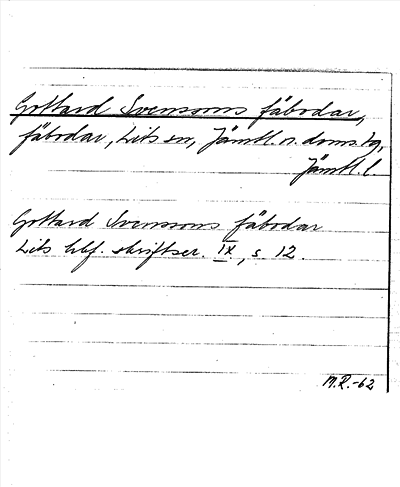 Gottard Svensons fäbodar,
fäbodar, Lits sn, Jämtl. n. doms. tg,
Jämtl. l.
Gottard Svenssons fäbodar
Lits hbf. skriftser. IX, s 12.
M.R.-62